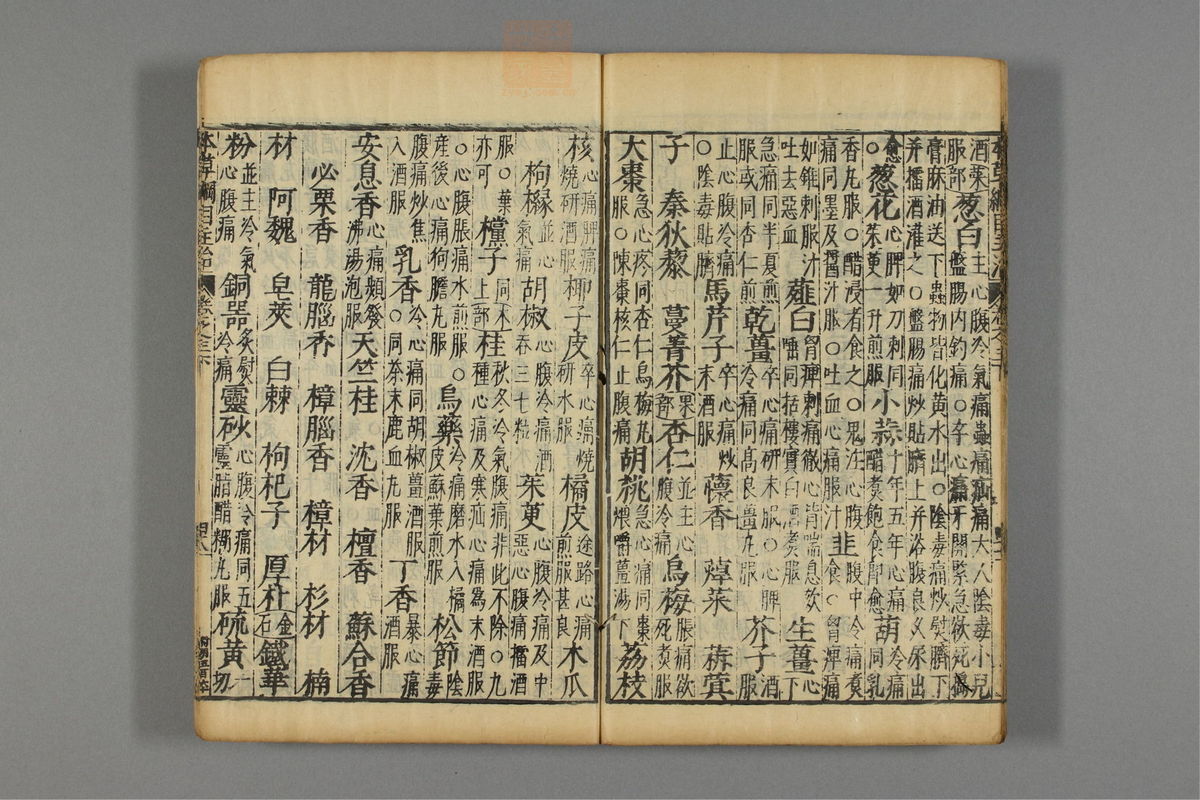 本草綱目主治
酒藥服部葱白主心腹冷氣痛蟲痛疝痛大人陰毒小兒盤腸內釣痛○卒心痛牙關緊急欲死搗
膏麻油送下蟲物皆化黄水出○陰毒痛炒熨臍下并擂酒灌之○盤腸痛炒貼臍上并浴腹良久尿出
愈○葱花心脾如刀刺同茱萸一升煎服小蒜十年五年心痛醋煮飽食即愈葫冷痛同乳
香丸服○醋浸者食之○鬼注心腹痛同墨及醬汁服○吐血心痛服汁韭腹中冷痛煮汁食○胷痺痛
如錐刺服汁吐去惡血薤白胷痺刺痛徹心背喘息欬唾同括樓實白酒煮服生薑心下
急痛同半夏煎服或同杏仁煎乾薑卒心痛研末服○心脾冷痛同高良薑丸服芥子酒服
止心腹冷痛○陰毒貼臍馬芹子卒心痛炒末酒服蘹香 蔊菜 菥蓂
子 秦狄藜 蔓菁芥果部杏仁並主心腹冷痛烏梅脹痛欲死煮服
大棗急心疼同杏仁烏梅丸服○陳棗核仁止腹痛胡桃急心痛同棗煨嚼薑湯下荔枝
核心痛脾痛燒研酒服椰子皮卒心痛燒研水服橘皮途路心痛煎服甚良木瓜
枸櫞並心氣痛胡椒心腹冷痛酒吞三七粒茱萸心腹冷痛及中惡心腹痛擂酒
服○葉亦可欓子同上木部桂秋冬冷氣腹痛非此不除○九種心痛及寒疝心痛為末酒服
○心腹脹痛水煎服○產後心痛狗膽丸服烏藥冷痛磨水入橘皮蘇葉煎服松節陰毒
腹痛炒焦入酒服乳香冷心痛同胡椒薑酒服○同茶末鹿血丸服丁香暴心痛酒服
安息香心痛頻發沸湯泡服天竺桂 沈香 檀香 蘇合香
必栗香 龍腦香 樟腦香 樟材 杉材 楠
材 阿魏 皁莢 白棘 枸杞子 厚朴金石鐵華
粉並主冷氣心腹痛銅器炙熨冷痛靈砂心腹冷痛同五靈脂醋糊丸服硫黄一切
本草綱目主治
四八